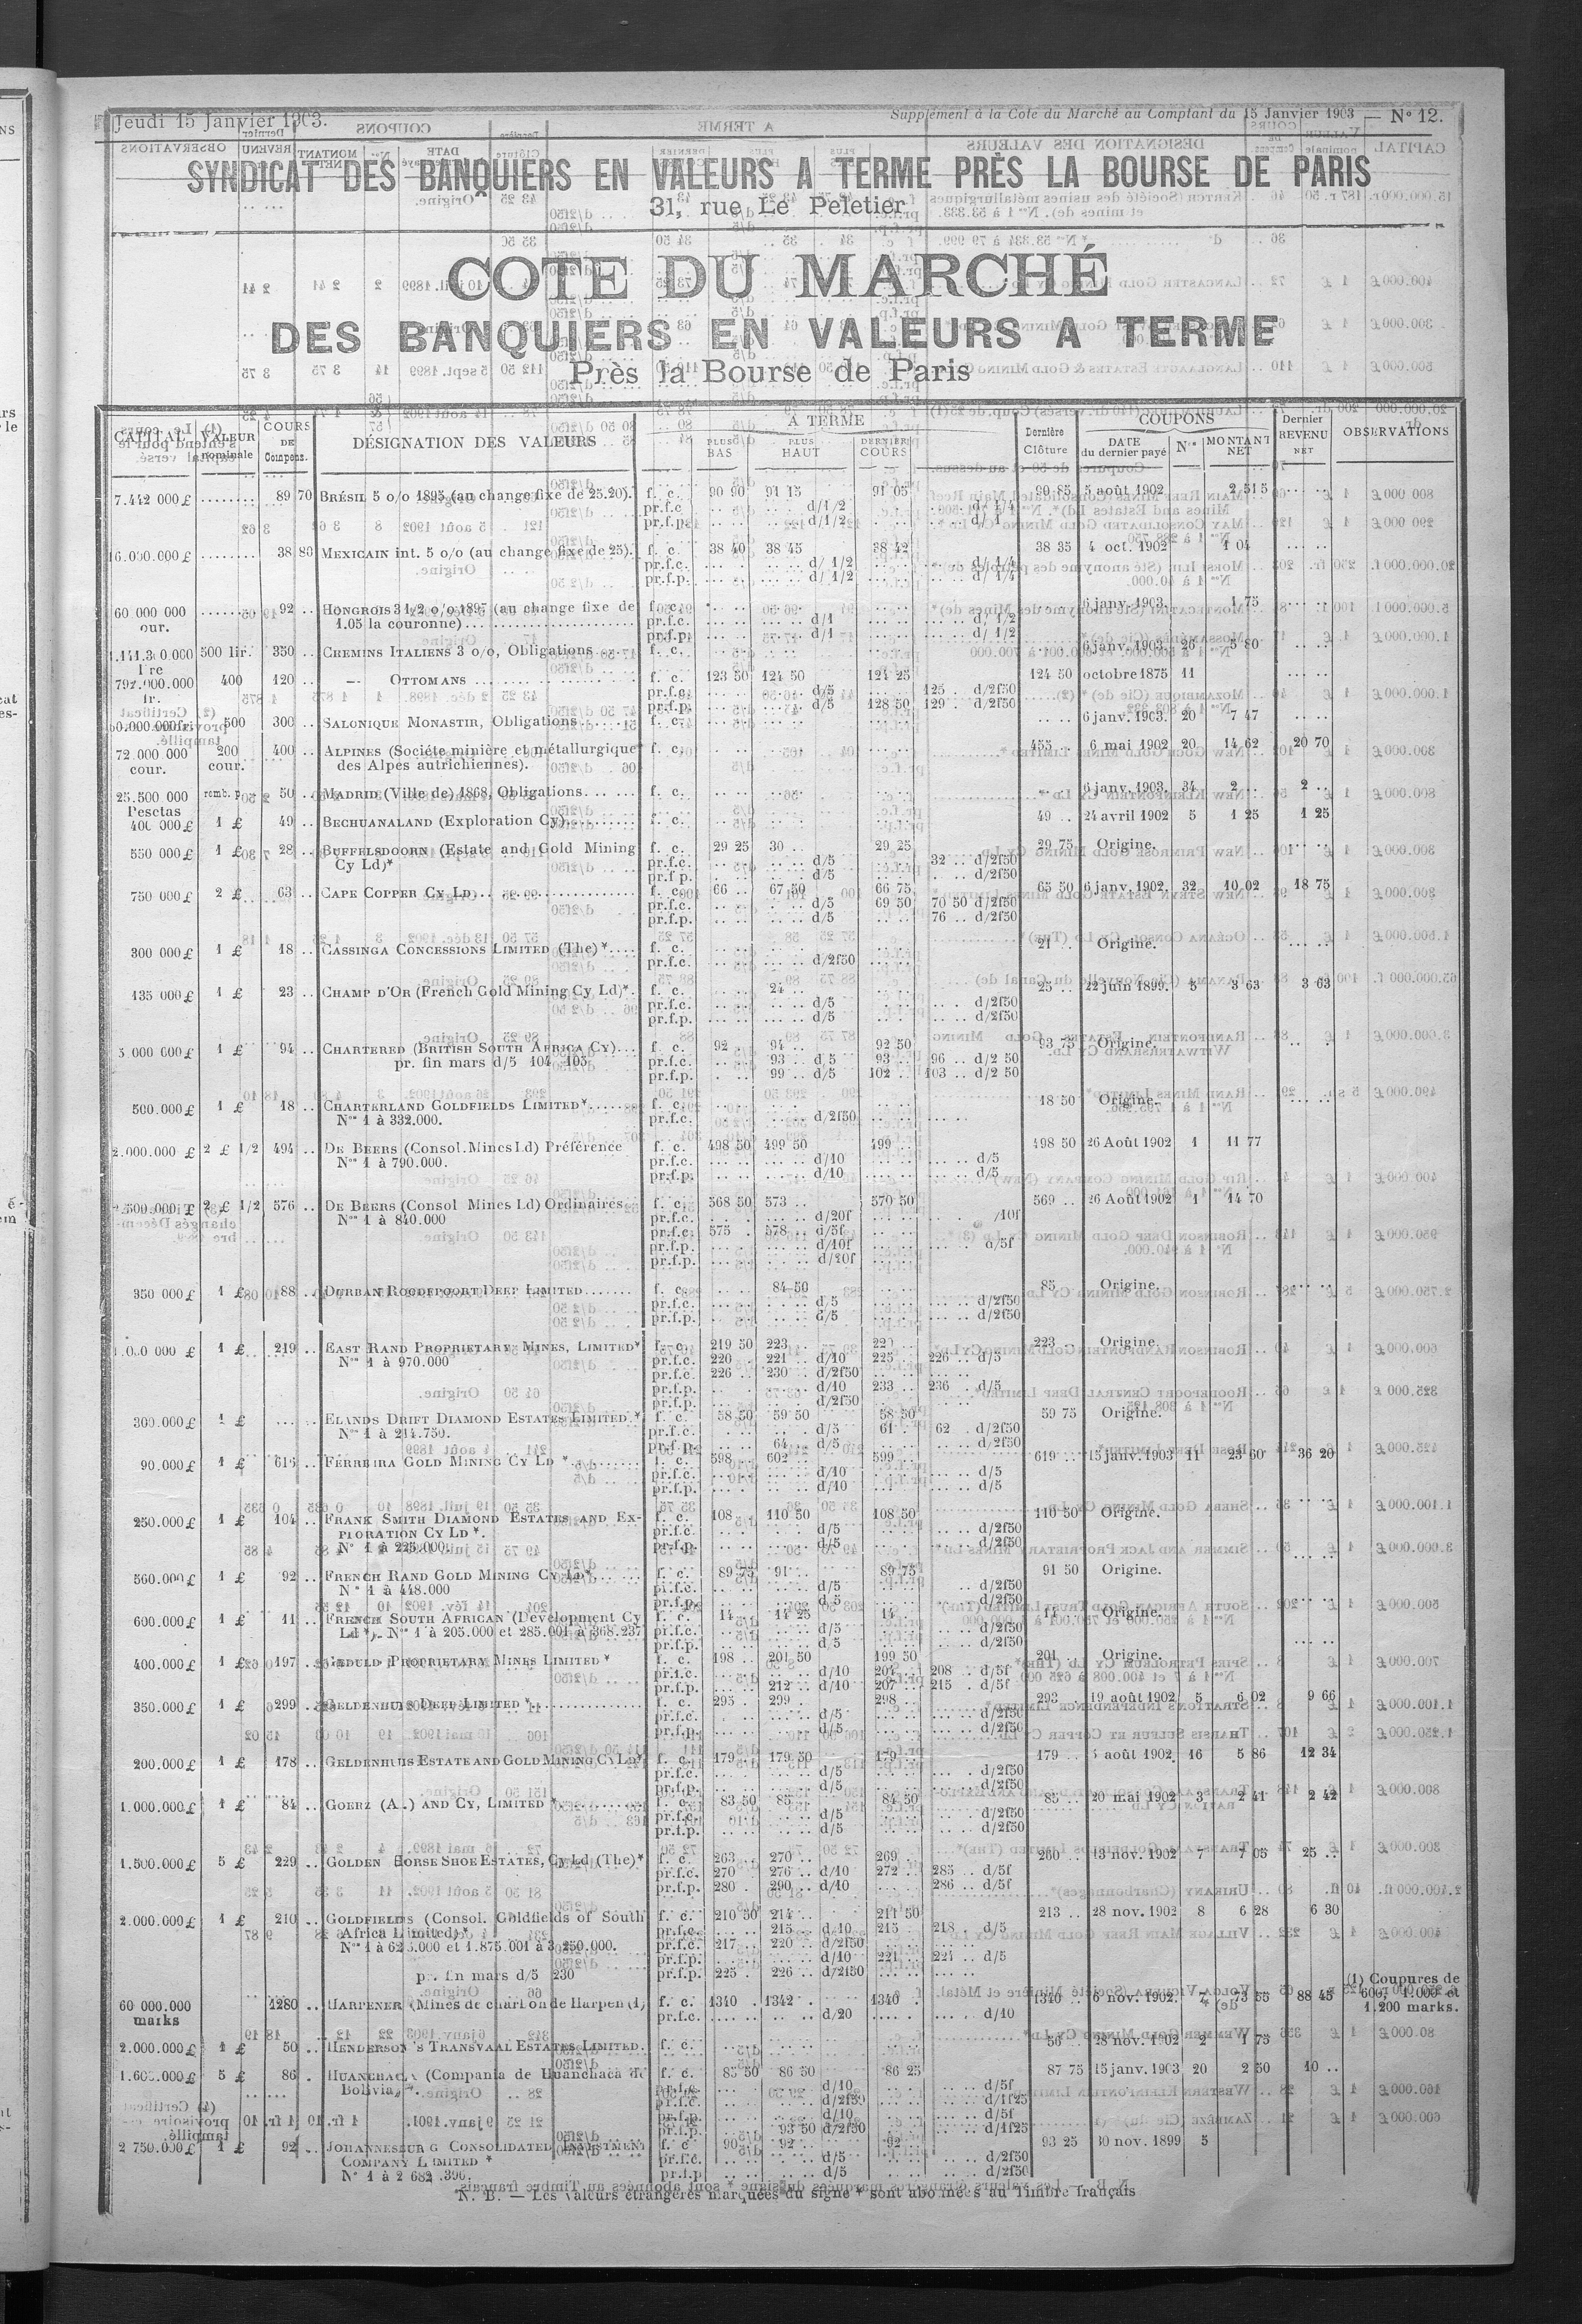 Jeudi 15 Janvier 1903. Supplément à la Cote du Marché au Comptant du 15 Janvier 1903 — N° 12.
SYNDICAT DES BANQUIERS EN VALEURS A TERME PRÈS LA BOURSE DE PARIS
31, rue Le Peletier
COTE DU MARCHÉ
DES BANQUIERS EN VALEURS A TERME
Près la Bourse de Paris
CAPITAL VALEUR nominale COURS DE Compens. DÉSIGNATION DES VALEURS A TERME PLUS BAS PLUS HAUT DERNIER COURS Dernière Clôture COUPONS DATE du dernier payé Nos MONTANT NET Dernier REVENU NET OBSERVATIONS
7.442 000 £ ........ 89 70 BRÉSIL 5 o/o 1895 (au change fixe de 25.20). f. c. 90 90 91 15 91 05 90 85 5 août 1902 2 515
pr.f.c. d/1/2 d/ 1/4
pr.f.p. d/1/2 d/ 1
16.000.000 £ ........ 38 80 MEXICAIN int. 5 o/o (au change fixe de 25). f. c. 38 40 38 45 38 42 38 35 4 oct. 1902 1 04
pr.f.c. d/ 1/2 d/ 1/4
pr.f.p. d/ 1/2 d/ 1/4
60 000 000 92 .. HONGROIS 3 1/2 o/o 1897 (au change fixe de f. c. 6 janv. 1903. 1 75
our. 1.05 la couronne) pr.f.c. d/1 d/ 1/2
pr.f.p. d/1 d/ 1/2
500 lir. 350 .. CHEMINS ITALIENS 3 o/o, Obligations f. c. 6 janv. 1903. 26 5 80
792.000.000 400 120 .. — OTTOMANS f. c. 123 50 124 50 124 25 124 50 octobre 1875 11
fr. pr.f.c. d/5 125 .. d/2f50
pr.f.p. d/5 128 50 129 .. d/2f50
500 300 .. SALONIQUE MONASTIR, Obligations f. c. 6 janv. 1903. 20 7 47
72 000 000 200 400 .. ALPINES (Sociéte minière et métallurgique f. c. 455 .. 6 mai 1902 20 14 62 20 70
cour. cour. des Alpes autrichiennes).
25.500 000 remb. p. 50 .. MADRID (Ville de) 1868, Obligations f. c. 6 janv. 1903. 34 2 .. 2 ..
Pesetas
400 000 £ 1 £ 49 .. BECHUANALAND (Exploration Cy) f. c. 49 .. 24 avril 1902 5 1 25 1 25
550 000 £ 1 £ 28 .. BUFFELSDOORN (Estate and Gold Mining f. c. 29 25 30 .. 29 25 29 75 Origine.
Cy Ld)* pr.f.c. d/5 32 .. d/2f50
pr.f.p. d/5 d/2f50
750 000 £ 2 £ 63 .. CAPE COPPER CY LD f. c. 66 .. 67 50 66 75 65 50 6 janv. 1902. 32 10 02 18 75
pr.f.c. d/5 69 50 70 50 d/2f50
pr.f.p. d/5 76 .. d/2f50
300 000 £ 1 £ 18 .. CASSINGA CONCESSIONS LIMITED (The)* f. c. 21 .. Origine.
pr.f.c. d/2f50
135 000 £ 1 £ 23 .. CHAMP D'OR (French Gold Mining Cy Ld)*. f. c. 24 .. 25 .. 22 juin 1899. 5 3 63 3 63
pr.f.c. d/5 d/2f50
pr.f.p. d/5 d/2f50
1 £ 94 .. CHARTERED (BRITISH SOUTH AFRICA CY) f. c. 92 . 94 .. 92 50 93 75 Origine.
pr. fin mars d/5 104 105 pr.f.c. 93 .. d 5 93 .. 96 .. d/2 50
pr.f.p. 99 .. d/5 102 .. 103 .. d/2 50
500.000 £ 1 £ 18 .. CHARTERLAND GOLDFIELDS LIMITED* f. c. 18 50 Origine.
Nos 1 à 332.000. pr.f.c. d/2f50
2.000.000 £ 2 £ 1/2 494 .. DE BEERS (Consol. Mines Ld) Préférence f. c. 498 50 499 50 499 .. 498 50 26 Août 1902 1 11 77
Nos 1 à 790.000. pr.f.c. d/10 d/5
pr.f.p. d/10 d/5
2 £ 1/2 576 .. DE BEERS (Consol Mines Ld) Ordinaires f. c. 568 50 573 .. 570 50 569 .. 26 Août 1902 1 14 70
Nos 1 à 840.000 pr.f.c. d/20f /10f
pr.f.c. 575 . 578 .. d/5f
pr.f.p. d/10f d/5f
pr.f.p. d/20f
350 000 £ 1 £ 88 .. DURBAN ROODEPOORT DEEP LIMITED f. c. 84 50 85 Origine.
pr.f.c. d/5 d/2f50
pr.f.p. d/5 d/2f50
1 £ 219 .. EAST RAND PROPRIETARY MINES, LIMITED* f. c. 219 50 223 .. 223 .. Origine
Nos 1 à 970.000 pr.f.c. 220 . 221 .. d/10 225 .. 226 .. d/5
pr.f.c. 226 .. 230 .. d/2f50
pr.f.p. d/10 233 .. 236 d/5
pr.f.p. d/2f50
300.000 £ 1 £ ELANDS DRIFT DIAMOND ESTATES LIMITED.* f. c. 58 50 59 50 58 50 59 75 Origine.
Nos 1 à 214.750. pr.f.c. d/5 61 . 62 . d/2f50
pr.f.p. 64 . d/5 d/2f50
90.000 £ 1 £ 616 .. FERREIRA GOLD MINING CY LD * f. c. 598 .. 602 .. 599 .. 619 .. 15 janv. 1903 11 23 60 36 20
pr.f.c. d/10 d/5
pr.f.p. d/10 d/5
250.000 £ 1 £ 104 .. FRANK SMITH DIAMOND ESTATES AND EX- f. c. 108 .. 110 50 108 50 110 50 Origine.
PLORATION CY LD *. pr.f.c. d/5 d/2f50
N° 1 à 225.000. pr.f.p. d/5 d/2f50
560.000 £ 1 £ 92 .. FRENCH RAND GOLD MINING CY LD* f. c. 89 75 91 .. 89 75 91 50 Origine.
N° 1 à 448.000 pr.f.c. d/5 d/2f50
pr.f.p. d/5 d/2f50
600.000 £ 1 £ 11 .. FRENCH SOUTH AFRICAN (Development Cy f. c. 14 14 25 14 .. Origine.
Ld*). Nos 1 à 205.000 et 285.001 à 368.237 pr.f.c. d/5 d/2f50
pr.f.p. d/5 d/2f50
400.000 £ 1 £ 197 .. GEDULD PROPRIETARY MINES LIMITED * f. c. 198 .. 201 50 199 50 201 .. Origine.
pr.f.c. d/10 204 .. 208 .. d/5f
pr.f.p. 212 .. d/10 207 .. 215 . d/5f
350.000 £ 1 £ 299 .. GELDENHUIS DEEP LIMITED* f. c. 295 . 299 . 298 .. 293 . 19 août 1902 5 6 02 9 66
pr.f.c. d/5 d/2f50
pr.f.p. d/5 d/2f50
200.000 £ 1 £ 178 .. GELDENHUIS ESTATE AND GOLD MINING CY LD* f. c. 179 .. 179 50 179 .. 179 .. août 1902 16 5 86 12 34
pr.f.c. d/5 d/2f50
pr.f.p. d/5 d/2f50
1.000.000 £ 1 £ 84 .. GOERZ (A..) AND CY, LIMITED * f. c. 83 50 85 .. 84 50 85 .. 20 mai 1902 3 2 41 2 42
pr.f.c. d/5 d/2f50
pr.f.p. d/5 d/2f50
1.500.000 £ 5 £ 229 .. GOLDEN HORSE SHOE ESTATES, Cy Ld (The)* f. c. 263 .. 270 .. 269 .. 260 .. 13 nov. 1902 7 7 05 25 ..
pr.f.c. 270 .. 276 .. d/10 272 .. 285 .. d/5f
pr.f.p. 280 . 290 .. d/10 286 .. d/5f
2.000.000 £ 1 £ 210 .. GOLDFIELDS (Consol. Goldfields of South f. c. 210 50 214 .. 211 50 213 .. 28 nov. 1902 8 6 28 6 30
Africa Limited)* pr.f.c. 215 . d/10 215 . 218 . d/5
Nos 1 à 625.000 et 1.875.001 à 3 250.000. pr.f.c. 217 .. 220 .. d/2f50
pr.f.p. d/10 221 .. 221 .. d/5
pr. fin mars d/5 230 pr.f.p. 225 . 226 .. d/2f50
(1) Coupures de
60 000.000 1280 .. HARPENER (Mines de charbon de Harpen (1) f. c. 1340 . 1342 . 1340 . 1340 .. 6 nov. 1902. 7 73 55 88 45 600, 1.000 et
marks pr.f.c. d/20 d/10 1.200 marks.
2.000.000 £ 1 £ 50 .. HENDERSON'S TRANSVAAL ESTATES LIMITED. f. c. 56 28 nov. 1902 2 1 75
1.600.000 £ 5 £ 86 . HUANCHACA (Compania de Huanchaca de f. c. 85 50 86 50 86 25 87 75 15 janv. 1903 20 2 50 10 ..
Bolivia)*. pr.f.c. d/10 d/5f
pr.f.c. d/2f50 d/1f25
pr.f.p. d/10 d/5f
pr.f.p. 93 50 d/2f50 d/1f25
2 750.000 £ 1 £ 92 .. JOHANNESBURG CONSOLIDATED INVESTMENT f. c. 90 .. 92 .. 92 .. 93 25 30 nov. 1899 5
COMPANY LIMITED * pr.f.c. d/5 d/2f50
N° 1 à 2 682 .396. pr.f.p. d/5 d/2f50
N. B. — Les valeurs étrangères marquées du signe * sont abonnées au Timbre français